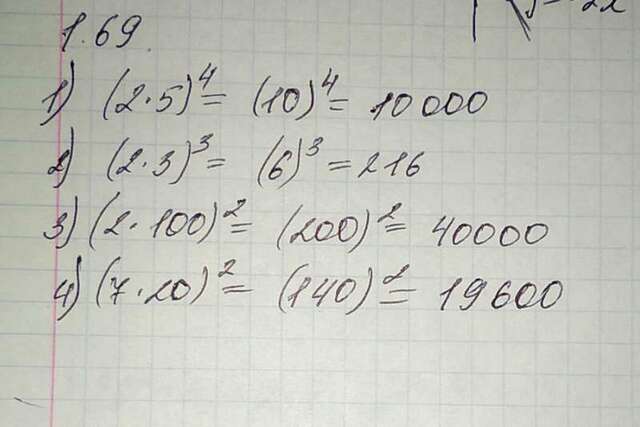 1.69.
1) (2·5)⁴ = (10)⁴ = 10000
2) (2·3)³ = (6)³ = 216
3) (2·100)² = (200)² = 40000
4) (7·20)² = (140)² = 19600